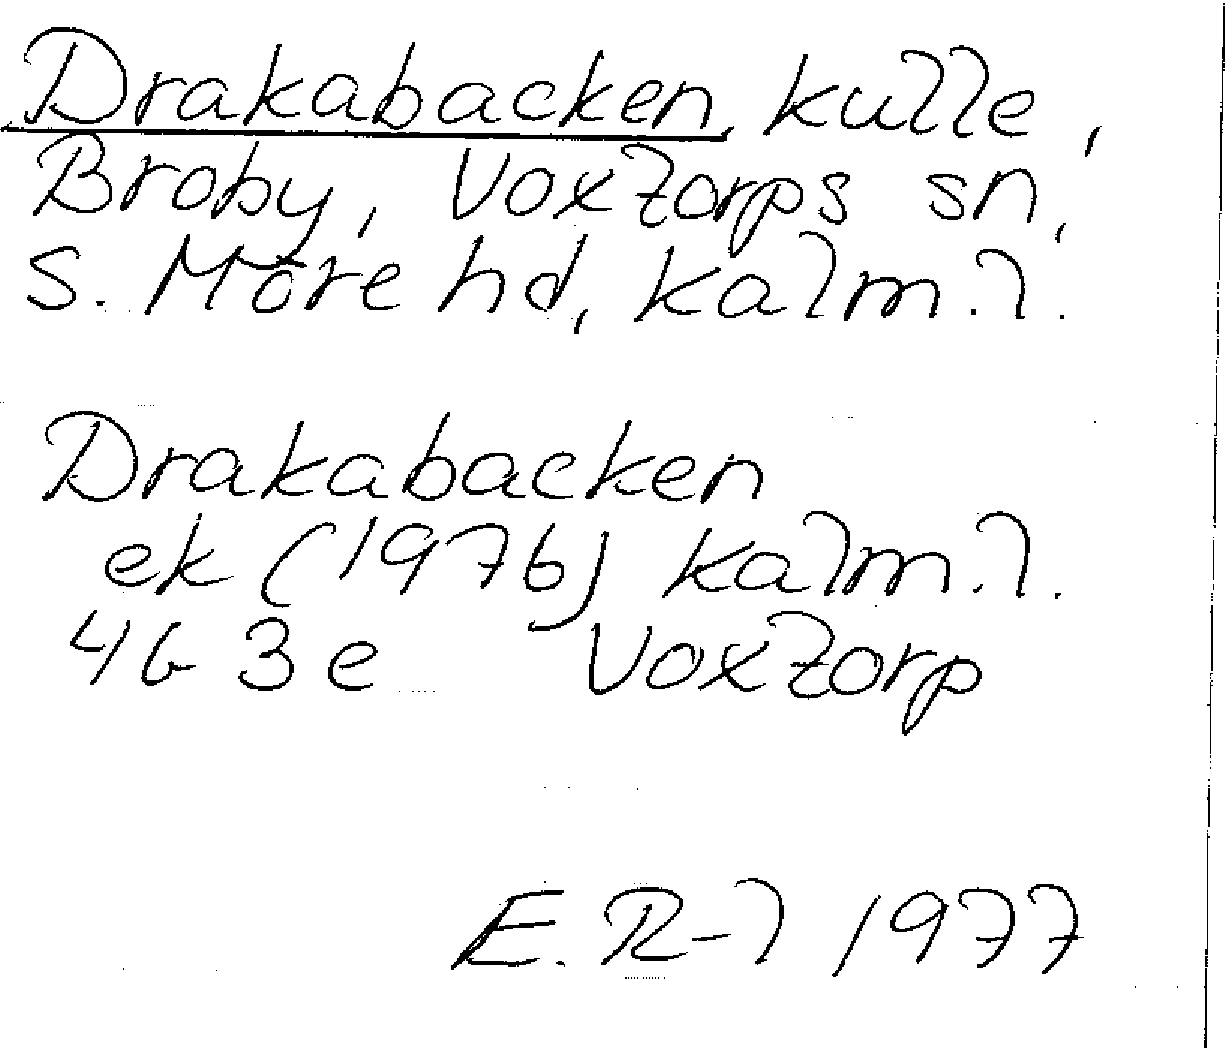 Drakabacken, kulle,
Broby, Voxtorps sn,
S. Möre hd, Kalm. l.
Drakabacken
ek (1976) Kalm. l.
4G 3e Voxtorp
E. R-l 1977